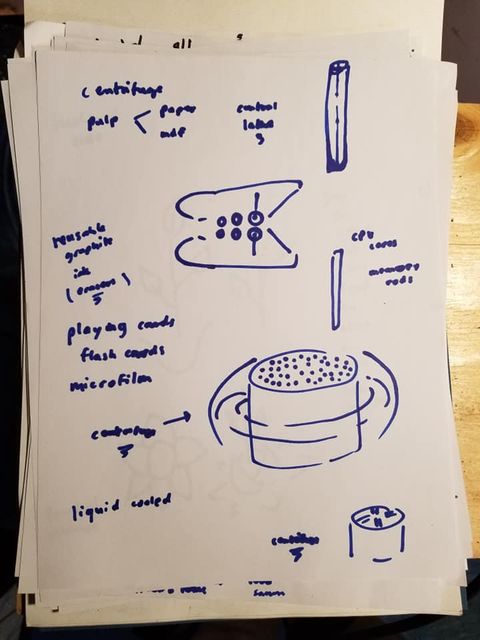 centrifuge
pulp < paper
mdf
control
reusable
graphite
ink
(erasers)
CPU
cores
memory
rods
playing cards
flash cards
microfilm
centrifuge
liquid cooled
centrifuge